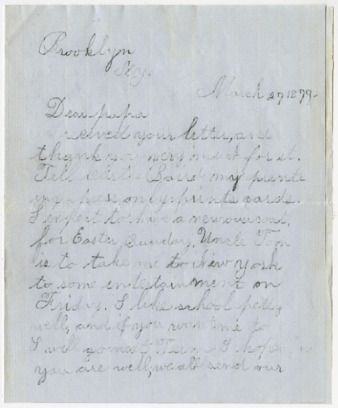 Brooklyn
N.y.
March 27 1879.
Dear papa
I recived your letter, and
thank you very much for it.
Tell my printi
press only prints cards.
I expect to have a new overcoat,
for Easter Sunday, Uncle Tom
is to take me to New York
to some entertainment on
Friday. I like school
well, and if you want me to
I will go next I hope
you are well, we all send our